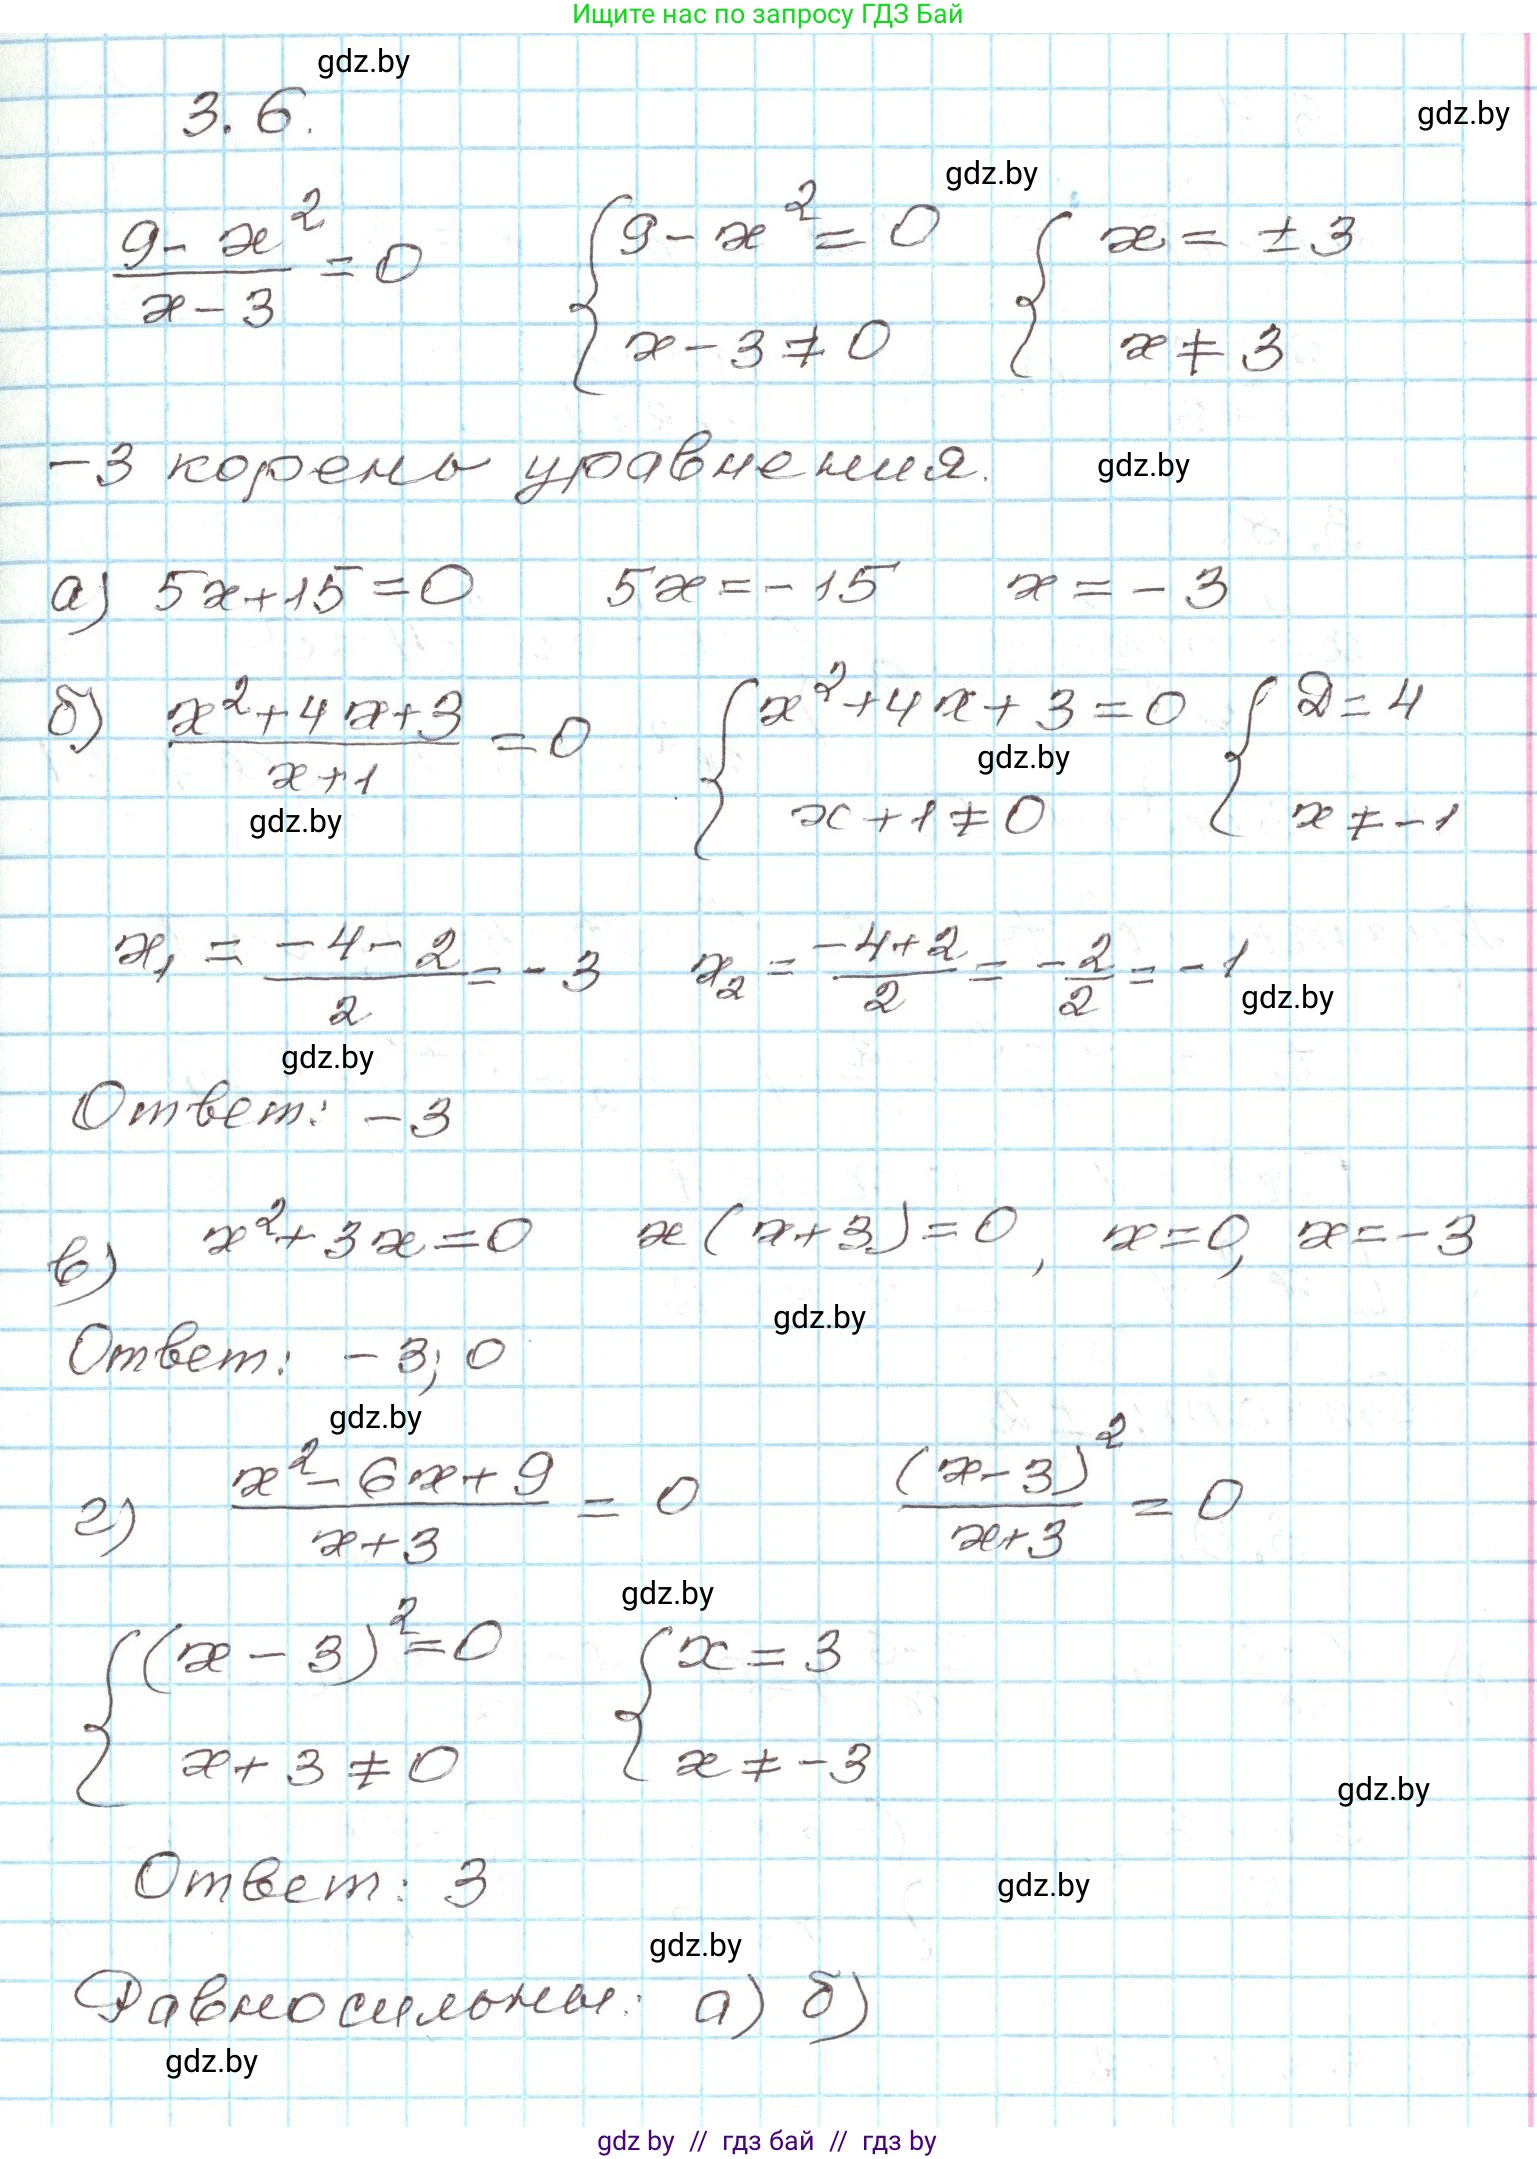 Ищите нас по запросу ГДЗ Бай
gdz.by
3.6.
gdz.by
gdz.by
(9 - x²)/(x - 3) = 0   { 9 - x² = 0   { x = ±3
x - 3 ≠ 0   x ≠ 3
-3 корень уравнения.
gdz.by
а) 5x+15=0   5x=-15   x=-3
б) (x²+4x+3)/(x+1) = 0   { x²+4x+3=0   { D=4
gdz.by
x+1≠0   x≠-1
gdz.by
x₁ = (-4-2)/2 = -3   x₂ = (-4+2)/2 = -2/2 = -1
gdz.by
gdz.by
Ответ: -3
в) x²+3x=0   x(x+3)=0,   x=0, x=-3
gdz.by
Ответ: -3; 0
gdz.by
г) (x²-6x+9)/(x+3) = 0   (x-3)²/(x+3) = 0
gdz.by
{ (x-3)²=0   { x=3
x+3≠0   x≠-3
gdz.by
Ответ: 3
gdz.by
gdz.by
Равносильны: а) б)
gdz.by
gdz by // гдз бай // гдз by